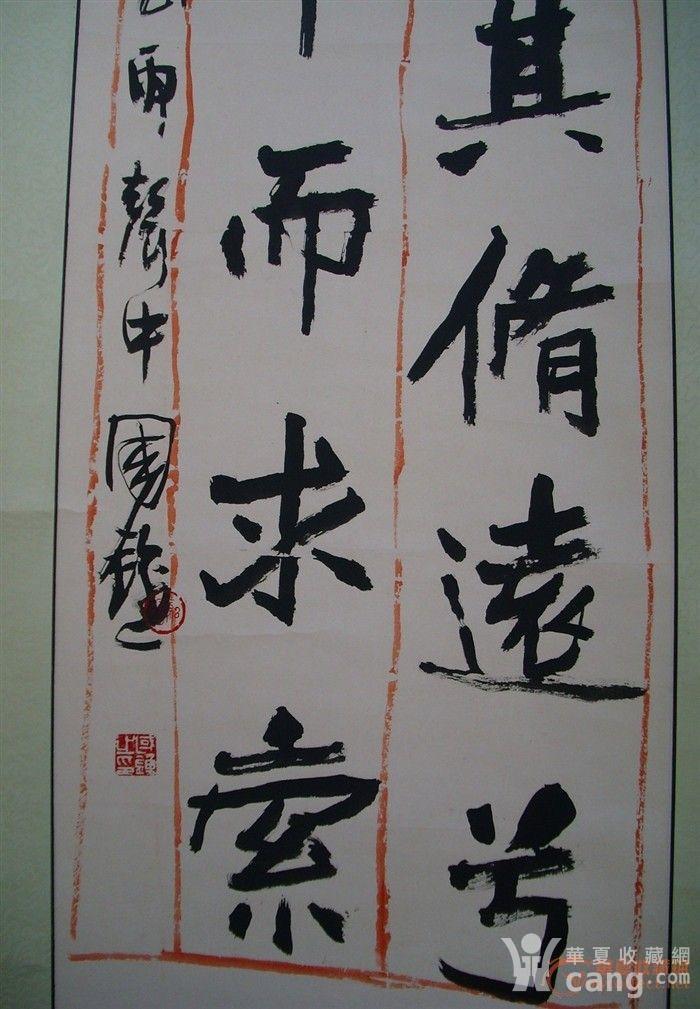 其脩遠兮
而求索
雨聲中
華夏收藏網
cang.com